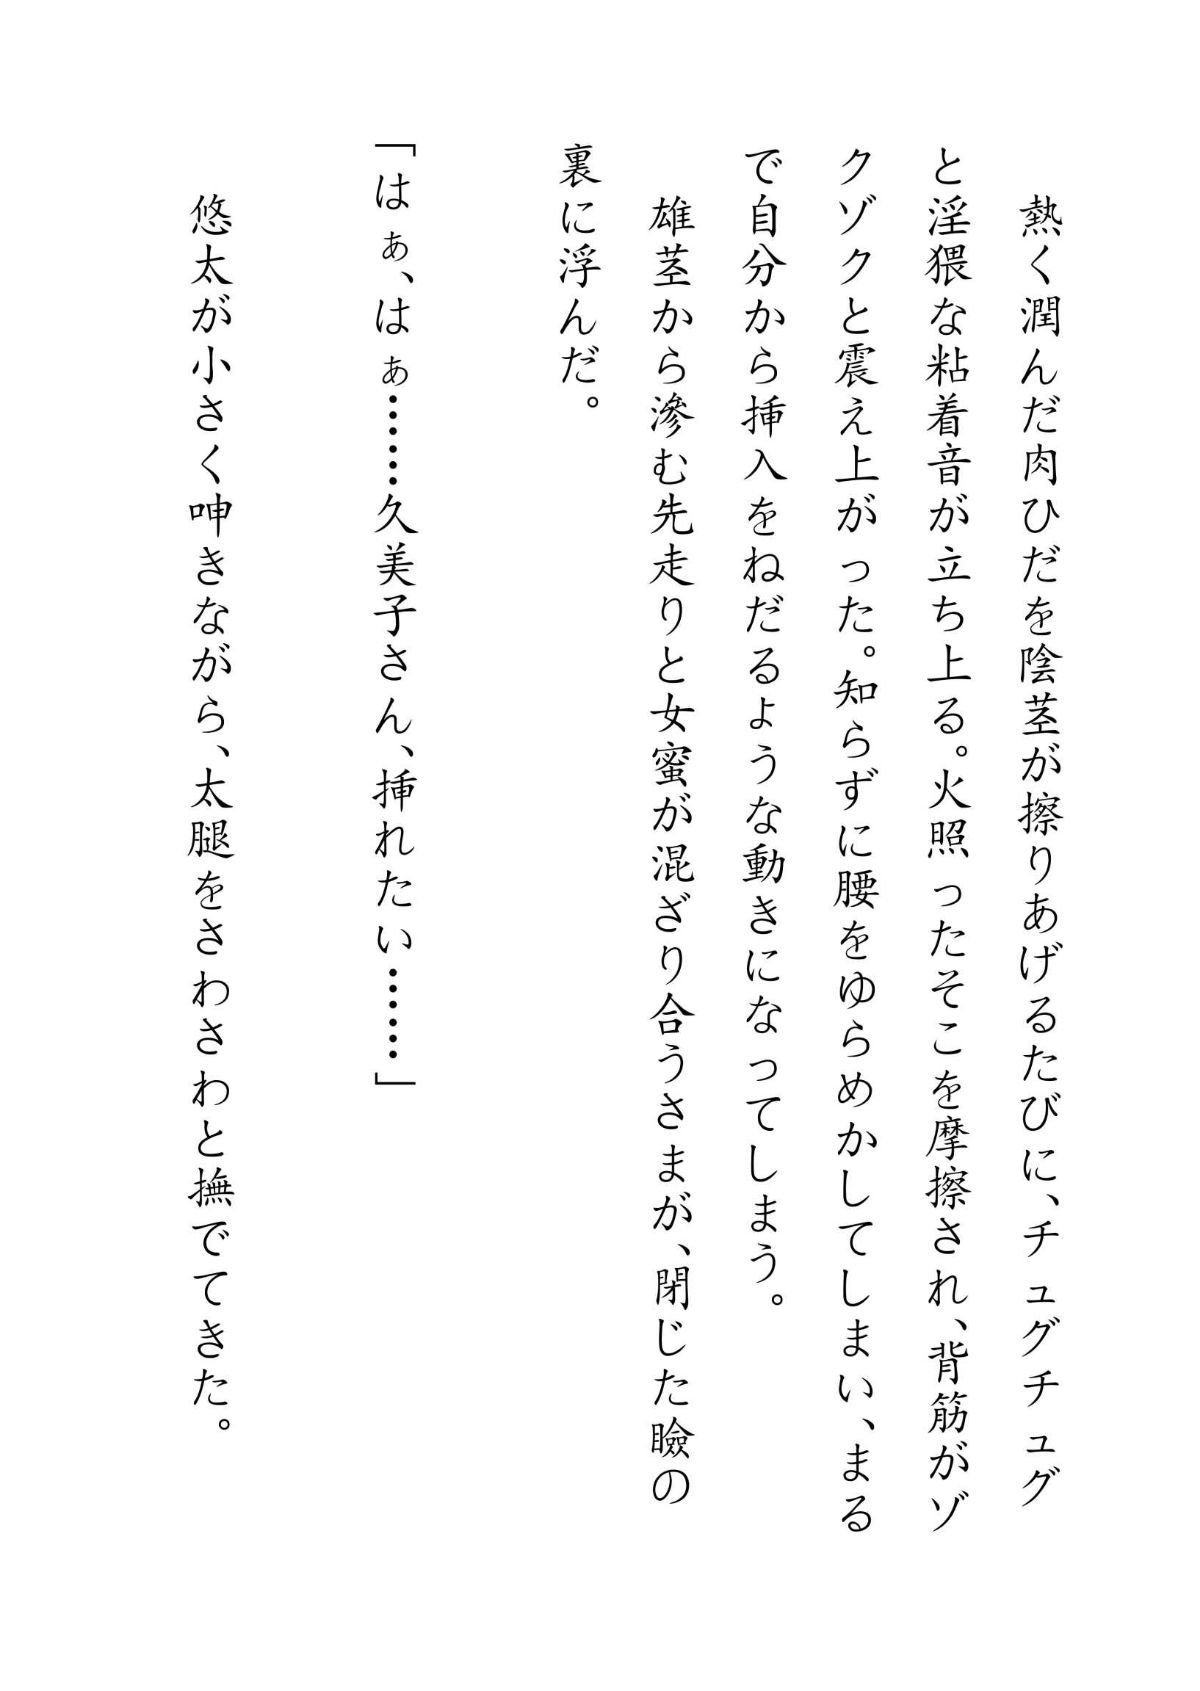 熱く潤んだ肉ひだを陰茎が擦りあげるたびに、チュグチュグ
と淫猥な粘着音が立ち上る。火照ったそこを摩擦され、背筋がゾ
クゾクと震え上がった。知らずに腰をゆらめかしてしまい、まる
で自分から挿入をねだるような動きになってしまう。
雄茎から滲む先走りと女蜜が混ざり合うさまが、閉じた瞼の
裏に浮んだ。
「はぁ、はぁ……久美子さん、挿れたい……」
悠太が小さく呻きながら、太腿をさわさわと撫でてきた。